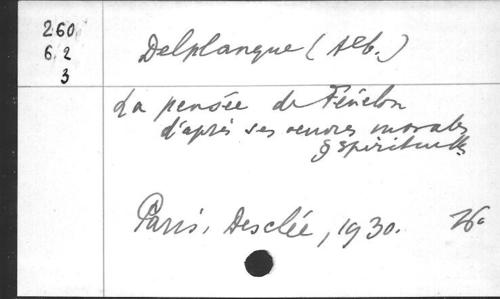 260
6.2
3
Delplanque (Alb.)
La pensée de Fénelon
d'après ses œuvres morales
& spirituelles
Paris, Desclée, 1930.